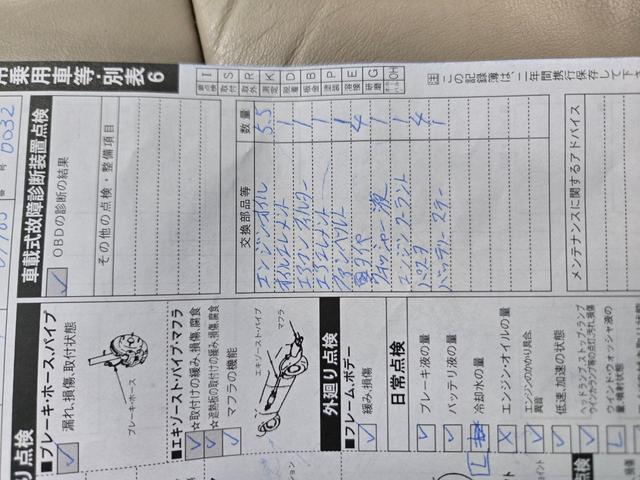 用乗用車等・別表6
I 点検
S
R
K 測定
D 脱着
B 板金
P 塗装
E 溶接
G 研磨
OH
㊟この記録簿は、二年間携行保存して下さ
0032
車載式故障診断装置点検
OBDの診断の結果
その他の点検・整備項目
交換部品等 数量
エンジンオイル 5.5
オイルエレメント 1
エアコンフィルター 1
エアエレメント 1
ファンベルト 1
タイヤ 4
ウォッシャー液 1
エンジンクーラント 1
4
バッテリー 1
メンテナンスに関するアドバイス
り点検
■ブレーキ・ホース、パイプ
漏れ、損傷、取付状態
ブレーキ・ホース
■エキゾースト・パイプ、マフラ
☆取付けの緩み、損傷、腐食
☆遮熱板の取付けの緩み、損傷、腐食
マフラの機能
エキゾースト・パイプ
マフラ
外廻り点検
■フレーム、ボデー
緩み、損傷
日常点検
ブレーキ液の量
バッテリ液の量
冷却水の量
エンジン・オイルの量
エンジンのかかり具合、異音
低速、加速の状態
ヘッドランプ、ストップ・ランプ
ウインカランプ等の点灯、汚れ、損傷
ウインド・ウォッシャ液の
量、噴射状態
点検